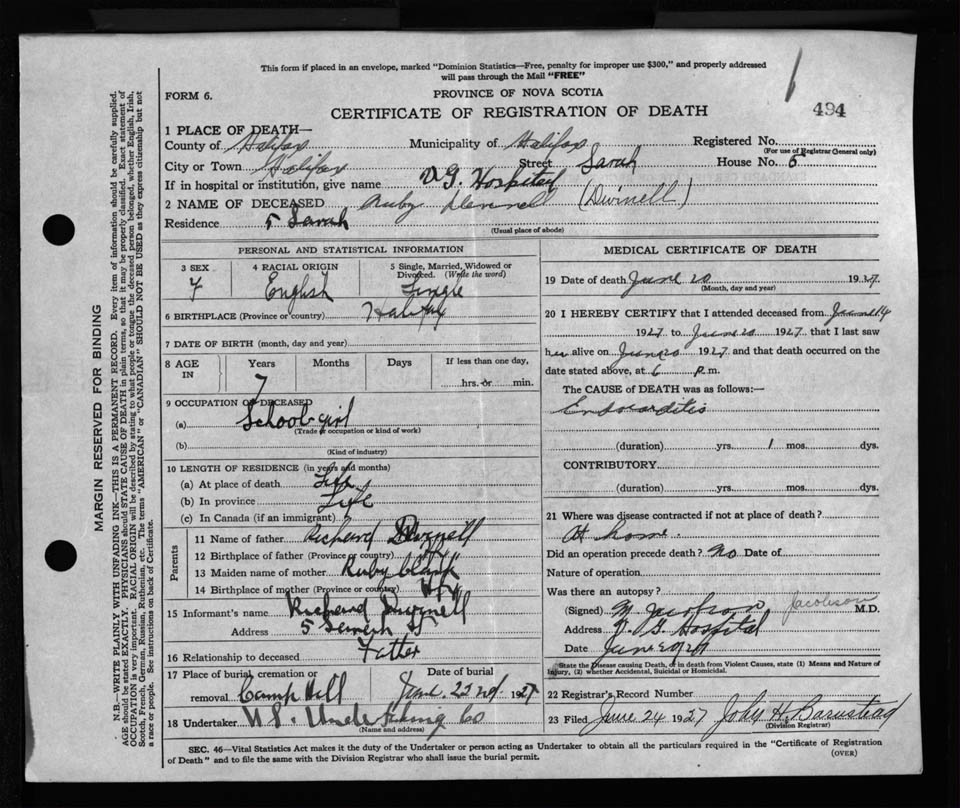 This form if placed in an envelope, marked "Dominion Statistics—Free, penalty for improper use $300," and properly addressed
will pass through the Mail "FREE"
FORM 6.
PROVINCE OF NOVA SCOTIA
494
CERTIFICATE OF REGISTRATION OF DEATH
1 PLACE OF DEATH—
County of Halifax Municipality of Halifax Registered No.
(For use of Registrar General only)
City or Town Halifax Street Sarah House No. 5
If in hospital or institution, give name V G. Hospital
2 NAME OF DECEASED Ruby (Divinell)
Residence 5 Sarah
(Usual place of abode)
PERSONAL AND STATISTICAL INFORMATION
3 SEX 4 RACIAL ORIGIN 5 Single, Married, Widowed or
Divorced. (Write the word)
F English Single
6 BIRTHPLACE (Province or country) Halifax
7 DATE OF BIRTH (month, day and year)
8 AGE IN Years Months Days If less than one day,
7 hrs. or min.
9 OCCUPATION OF DECEASED
(a) School girl
(Trade or occupation or kind of work)
(b)
(Kind of industry)
10 LENGTH OF RESIDENCE (in years and months)
(a) At place of death Life
(b) In province Life
(c) In Canada (if an immigrant)
Parents
11 Name of father Richard
12 Birthplace of father (Province or country)
13 Maiden name of mother Ruby Clark
14 Birthplace of mother (Province or country) Hfx
15 Informant's name Richard
Address 5 St
16 Relationship to deceased Father
17 Place of burial, cremation or Date of burial
removal Camp Hill June 22nd 1927
18 Undertaker N.S. Undertaking Co
(Name and address)
MEDICAL CERTIFICATE OF DEATH
19 Date of death June 20 1927.
(Month, day and year)
20 I HEREBY CERTIFY that I attended deceased from June 14
1927 to June 20 1927 that I last saw
her alive on June 20 1927 and that death occurred on the
date stated above, at 6 P.m.
The CAUSE of DEATH was as follows:—
Endocarditis
(duration) yrs. 1 mos. dys.
CONTRIBUTORY
(duration) yrs. mos. dys.
21 Where was disease contracted if not at place of death?
At home.
Did an operation precede death? No Date of
Nature of operation
Was there an autopsy?
(Signed) M. Jacobson Jacobson M.D.
Address V. G. Hospital
Date June
State the Disease causing Death, or in death from Violent Causes, state (1) Means and Nature of
Injury, (2) whether Accidental, Suicidal or Homicidal.
22 Registrar's Record Number
23 Filed June 24 1927 John H. Barnstead
(Division Registrar)
SEC. 46—Vital Statistics Act makes it the duty of the Undertaker or person acting as Undertaker to obtain all the particulars required in the "Certificate of Registration
of Death" and to file the same with the Division Registrar who shall issue the burial permit.
(OVER)
MARGIN RESERVED FOR BINDING
N.B.—WRITE PLAINLY WITH UNFADING INK—THIS IS A PERMANENT RECORD. Every item of information should be carefully supplied.
AGE should be stated EXACTLY. PHYSICIANS should STATE CAUSE OF DEATH in plain terms, so that it may be properly classified. Exact statement of
OCCUPATION is very important. RACIAL ORIGIN will be described by stating to what people or tongue the deceased person belonged, whether English, Irish,
Scotch, French, German, Russian, Ruthenian, etc. The terms "AMERICAN" or "CANADIAN" SHOULD NOT BE USED as they express citizenship but not
a race or people. See instructions on back of Certificate.